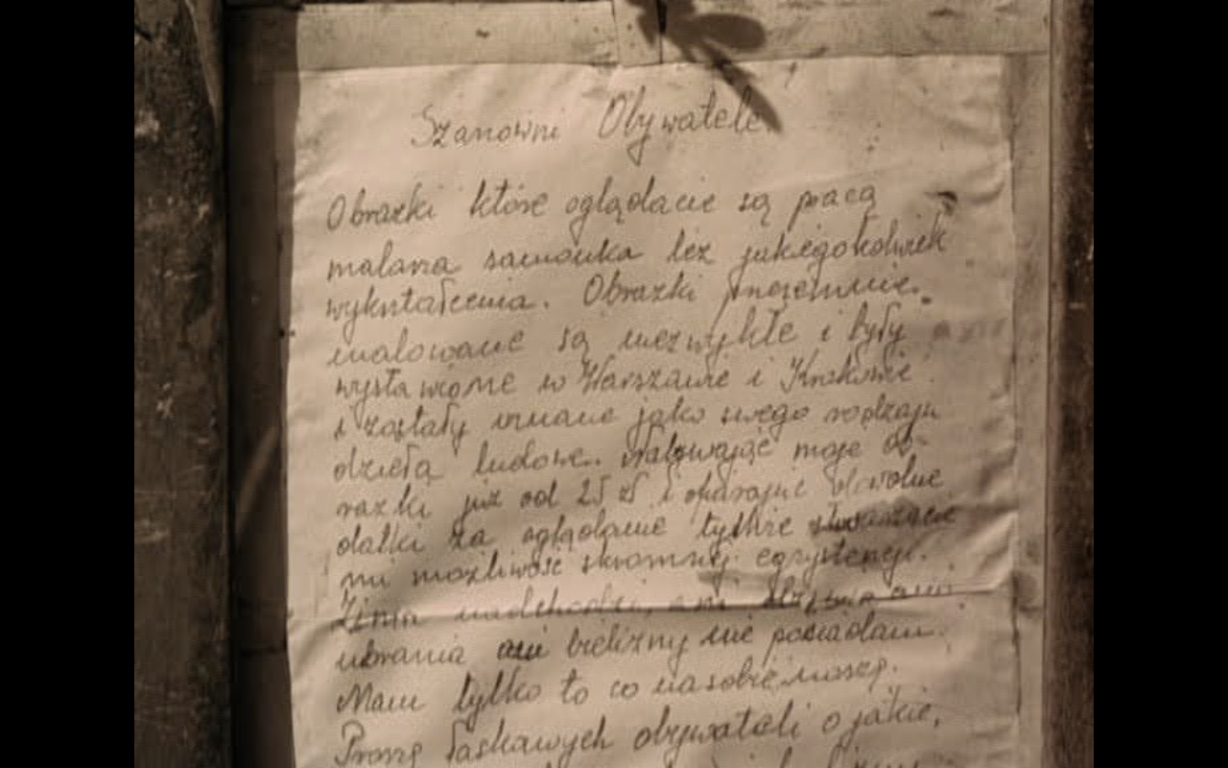 Szanowni Obywatele
Obrazki które oglądacie są pracą
malarza samouka bez jakiegokolwiek
wykształcenia. Obrazki przezemnie
malowane są niezwykłe i były
wystawione w Warszawie i Krakowie
i zostały uznane jako swego rodzaju
dzieła ludowe. moje ob-
razki już od 25 zł i
datki za oglądanie tychże
mi możliwość skromnej egzystencji.
Zima nadchodzi, ani ani
ubrania ani bielizny nie posiadam.
Mam tylko to co na sobie noszę.
Proszę łaskawych obywateli o jakie,